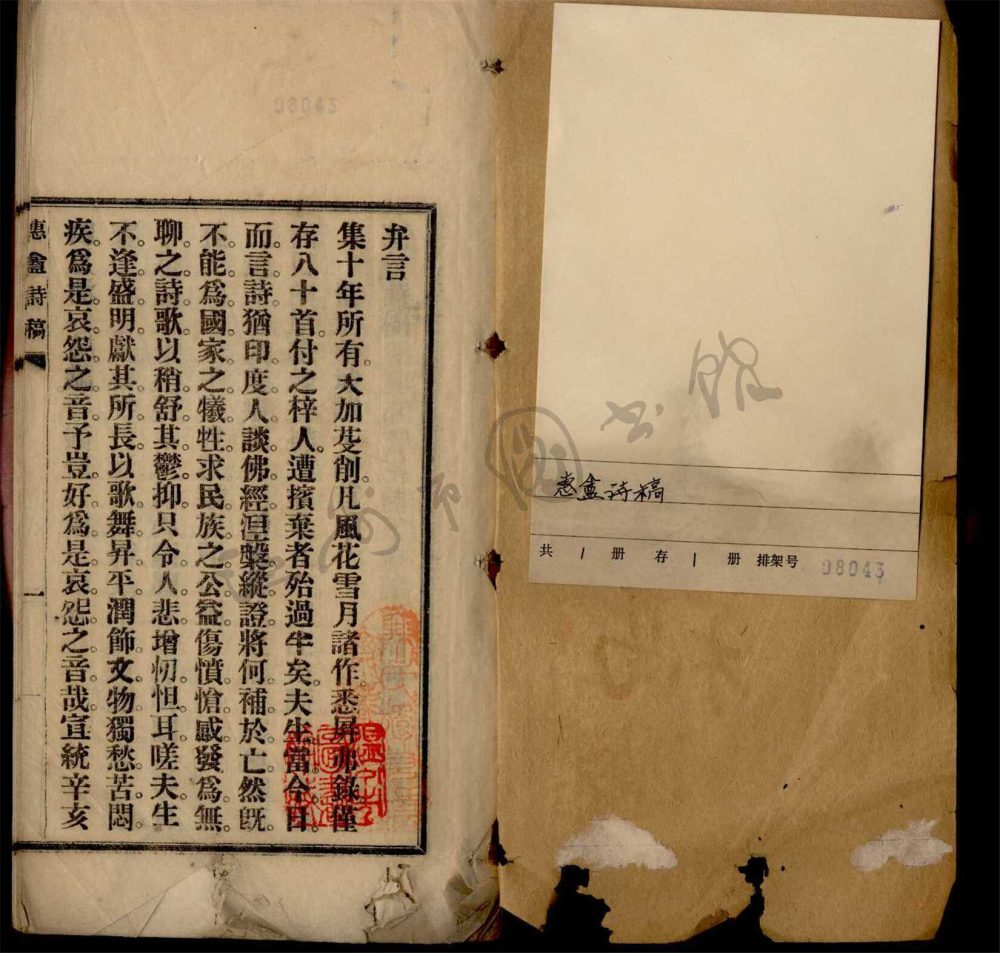 惠盦诗稿
共 1 册 存 1 册 排架号 08043
08043
弁言
集十年所有。大加芟削。凡風花雪月諸作。悉屏弗錄。僅
存八十首。付之梓人。遭擯棄者殆過半矣。夫生當今日。
而言詩。猶印度人談佛經。涅槃縱證。將何補於亡。然既
不能爲國家之犧牲。求民族之公益。傷憤愴感。發爲無
聊之詩歌。以稍舒其鬱抑。只令人悲增忉怛耳。嗟夫。生
不逢盛明。獻其所長。以歌舞昇平。潤飾文物。獨愁苦悶
疾。爲是哀怨之音。予豈好爲是哀怨之音哉。宣統辛亥
惠盦詩稿
一